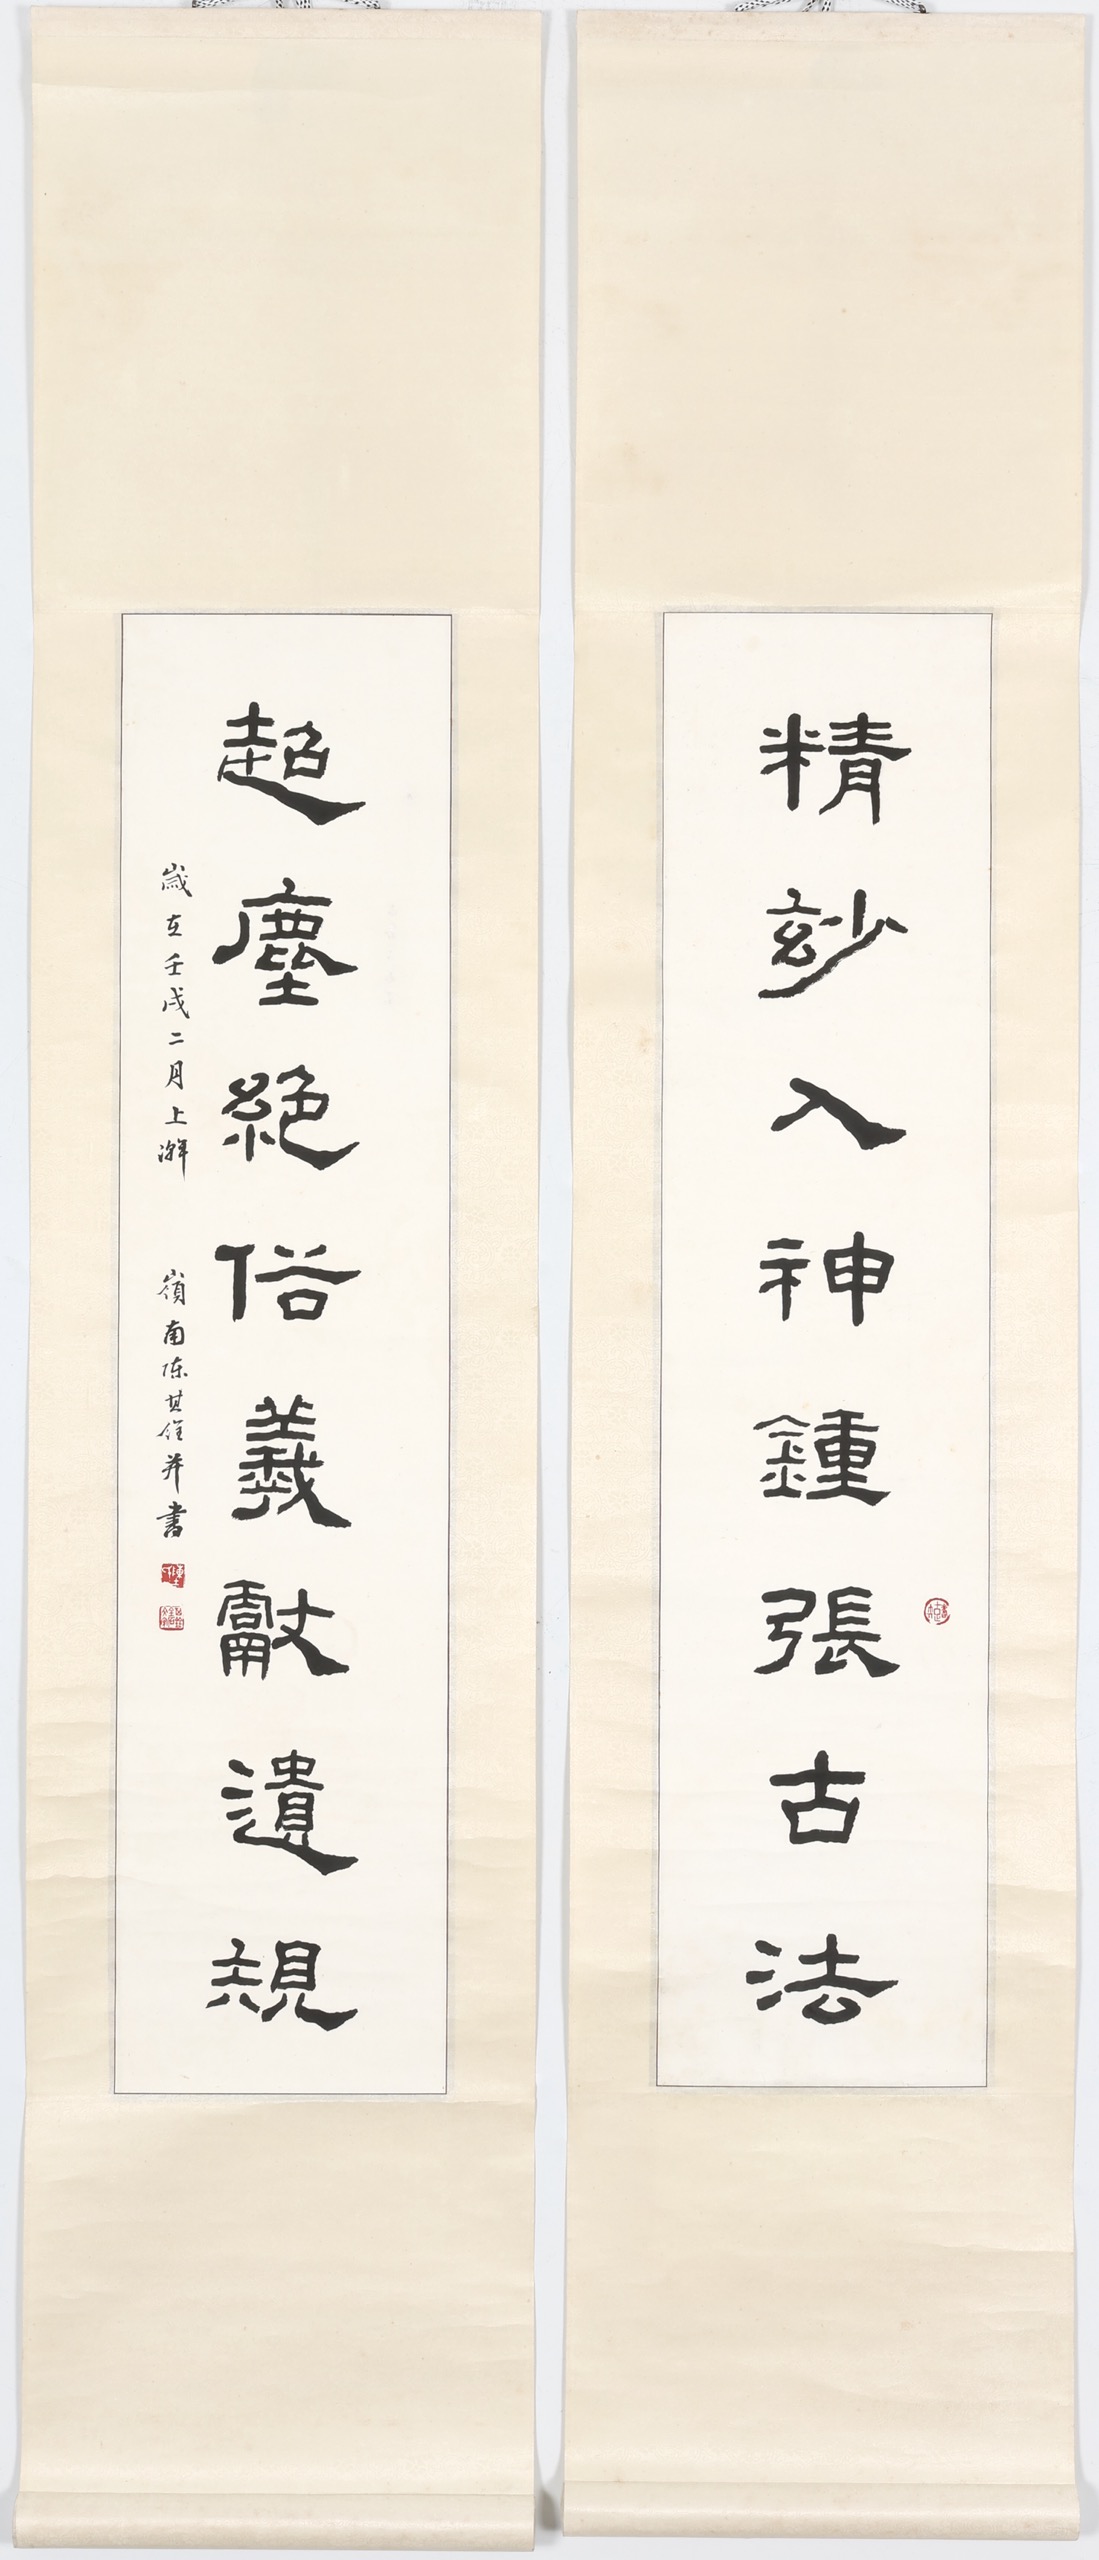 精玅入神鍾張古法
超塵絕俗羲獻遺規
歲在壬戌二月上澣 嶺南陳其銓并書